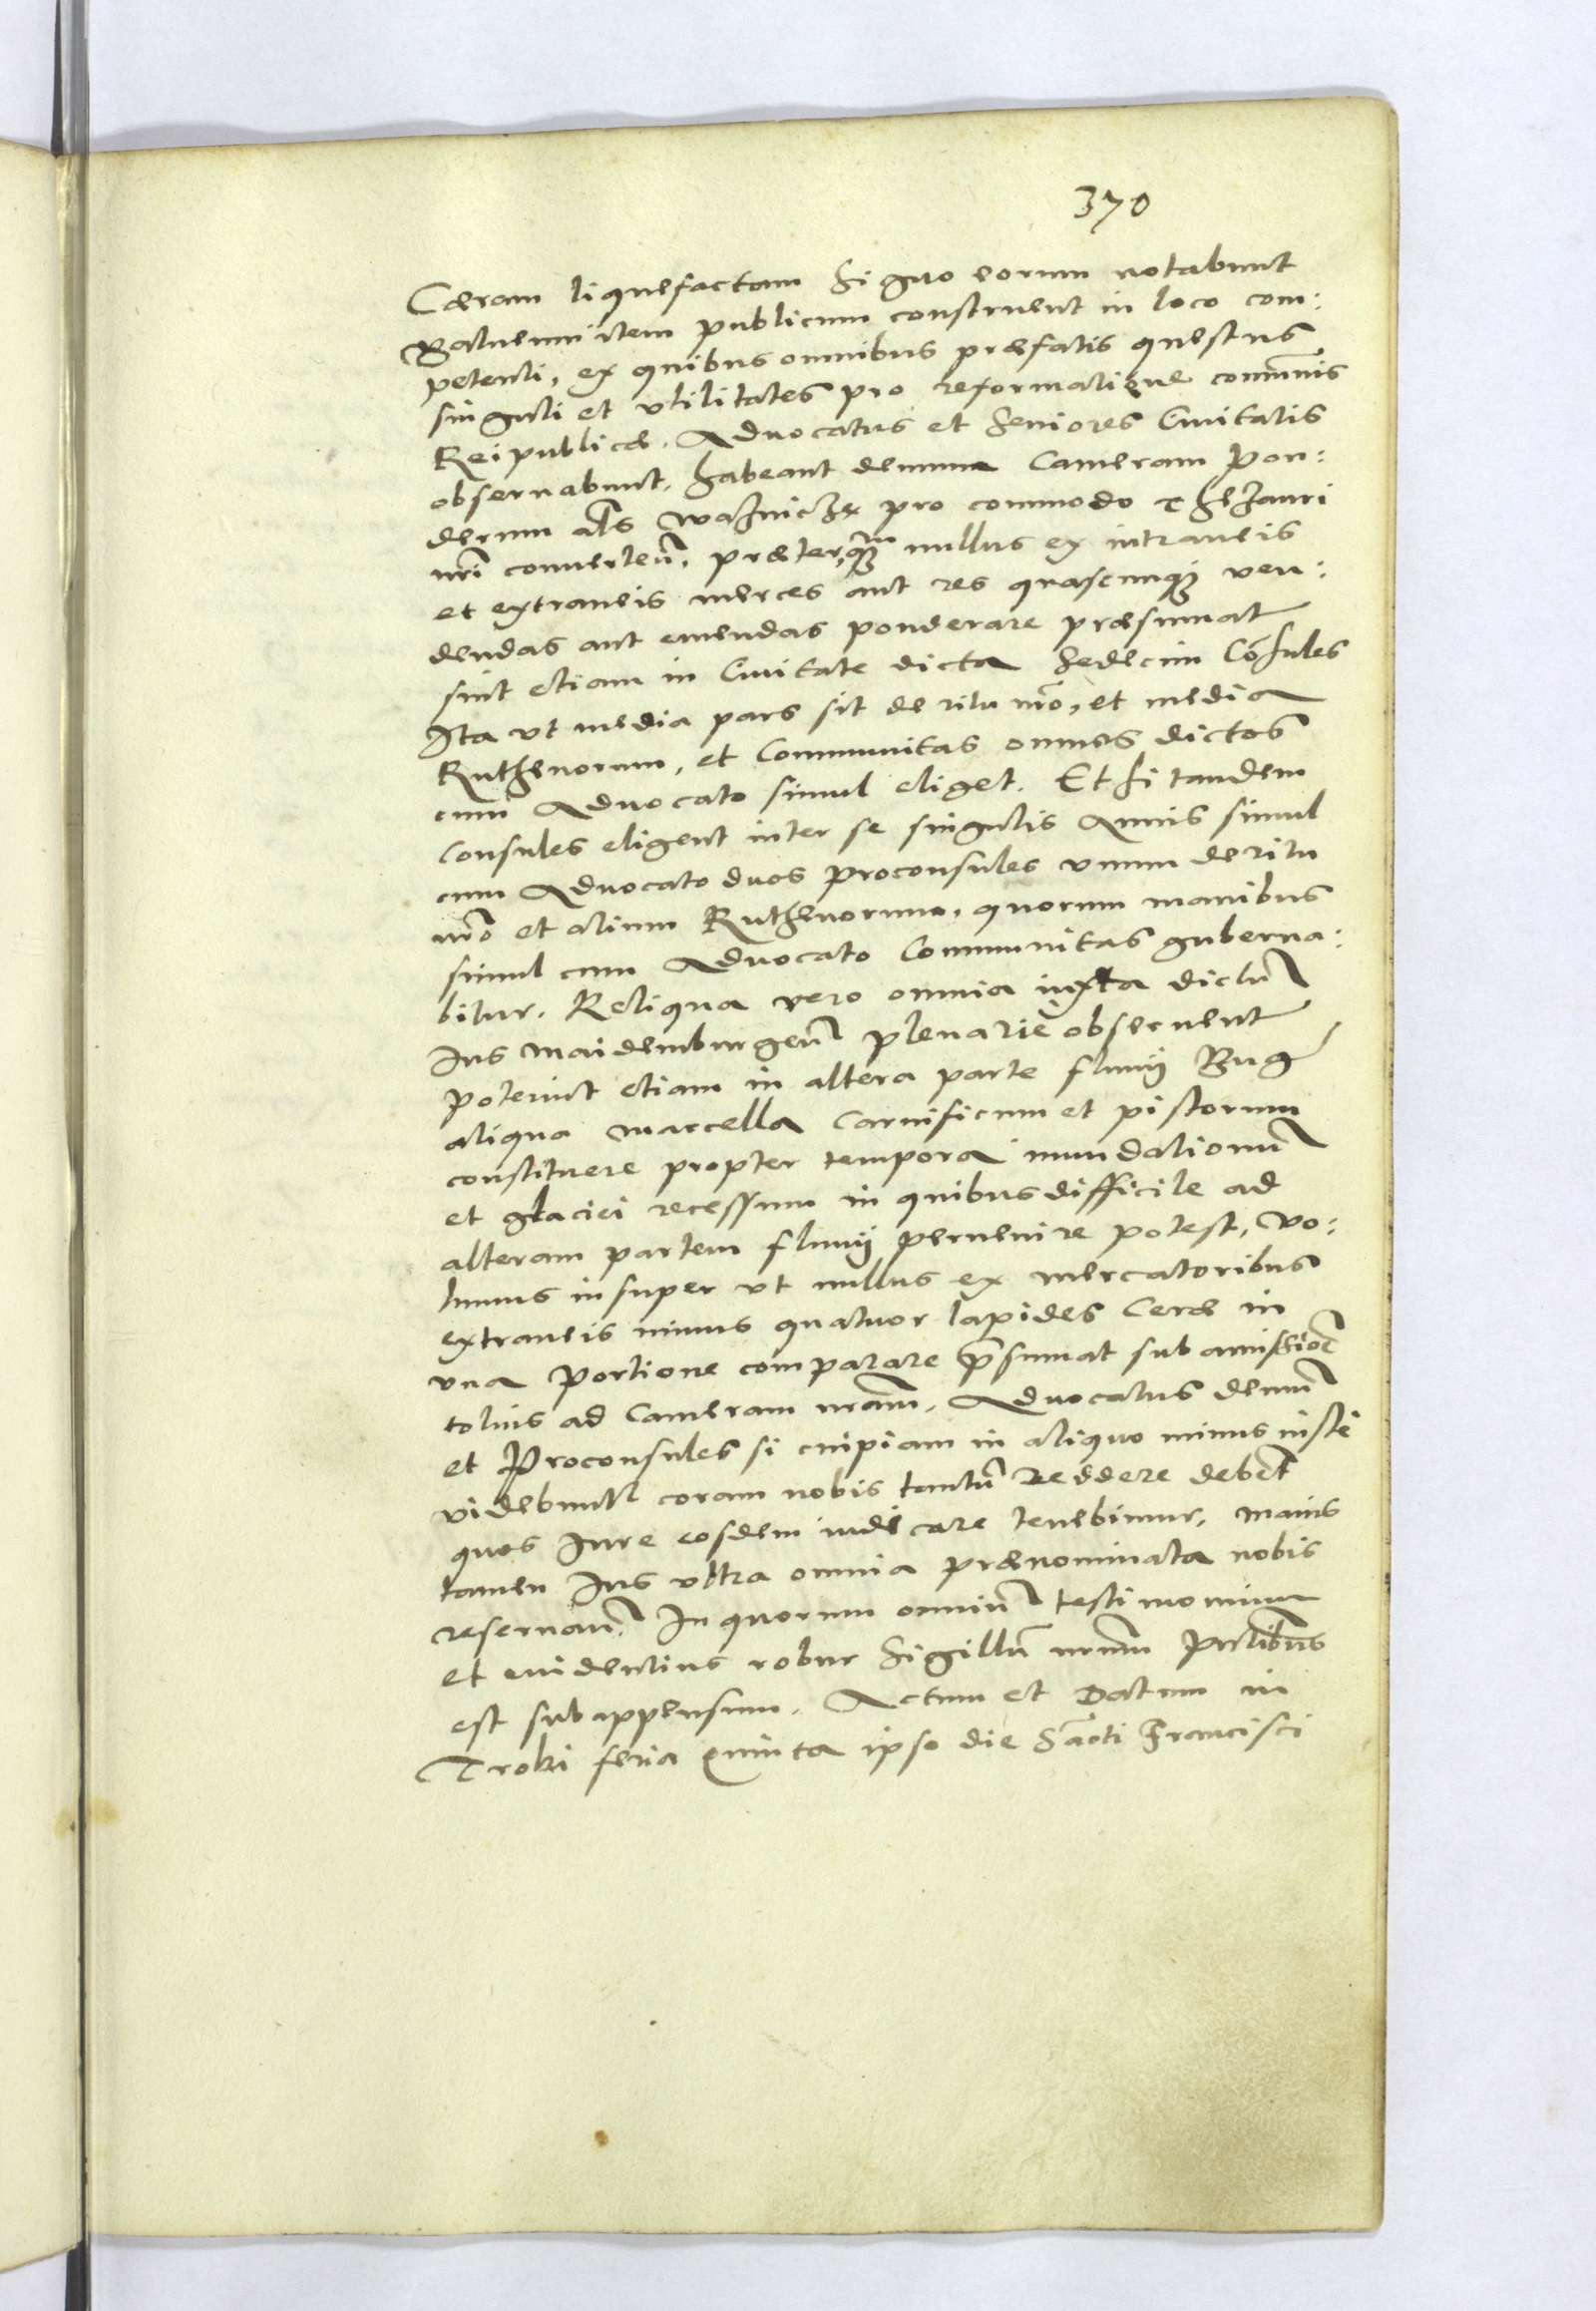 370
Caeram liquefactam signo eorum notabunt
Balneum item publicum construent in loco com:
petenti, ex quibus omnibus praefatis questus
singuli et vtilitates pro reformatione com̃unis
Reipublicae. Aduocatus et seniores Ciuitatis
obseruabunt, habeant demum Cameram pon:
derum al̃s Wažnicze pro commodo thesauri
nr̃i conuerteñ, praeterquam nullus ex intraneis
et extraneis merces aut res quascunq̃ ven:
dendas aut emendas ponderare praesumat
sint etiam in Ciuitate dicta sedecim Cõsules
Ita vt media pars sit de ritu nr̃o, et media
Ruthenorum, et Communitas omnes dictos
cum Aduocato simul eliget. Et si tandem
Consules eligent inter se singulis Annis simul
cum Aduocato duos proconsules vnum de ritu
nr̃o et alium Ruthenorum, quorum manibus
simul cum Aduocato Communitas guberna:
bitur. Reliqua vero omnia iuxta dictũ
Ius Maidemburgeñ plenarie obseruent
poterint etiam in altera parte fluuij Bug
aliqua Maccella Carnificum et pistorum
constituere propter tempora inundationũ
et glaciei recessum in quibus difficile ad
alteram partem fluuij peruenire potest, Vo:
lumus insuper vt nullus ex mercatoribus
extraneis minus quatuor lapides Cerae in
vna Portione comparare p̃sumat sub amissioẽ
totius ad Cameram nr̃am. Aduocatus demũ
et Proconsules si cuipiam in aliquo minus iuste
videbuntr coram nobis tantũ Reddere debẽt
quos Iure eosdem iudicare tenebimur, maius
tamen Ius vltra omnia praenominata nobis
reseruañ. In quorum omniũ testimonium
et euidentius robur Sigillũ nr̃um p̃ntibus
est subappensum. Actum et Datum in
Troki feria quinta ipso die Sãcti Francisci